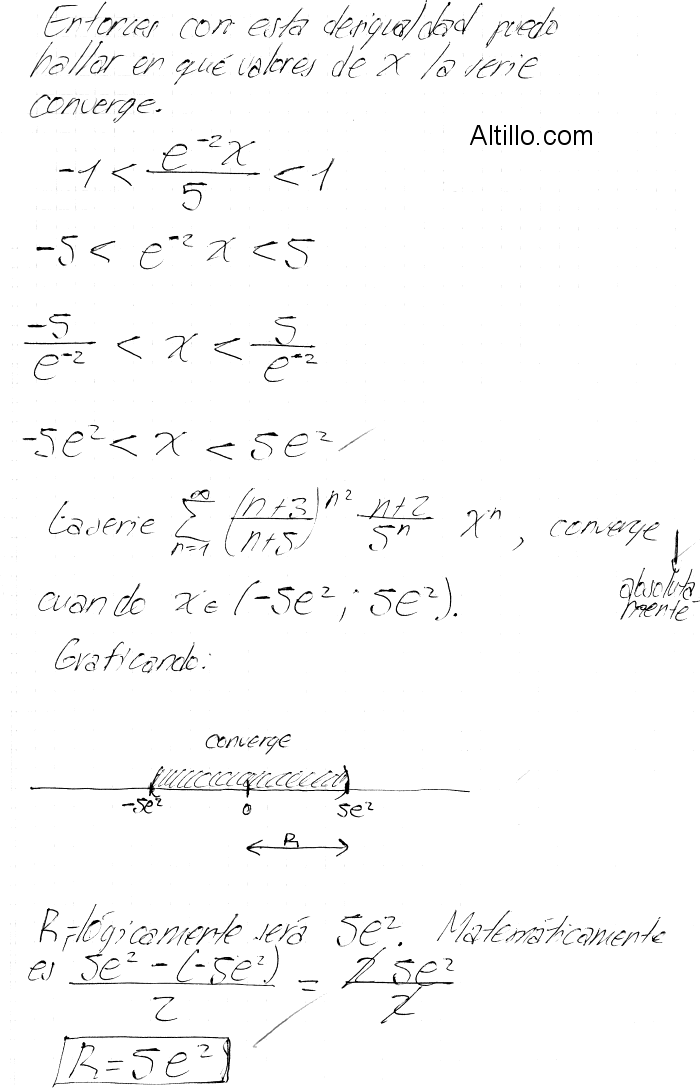 Entonces con esta desigualdad puedo
hallar en qué valores de x la serie
converge.
Altillo.com
-1 < e⁻²x / 5 < 1
-5 < e⁻² x < 5
-5 / e⁻² < x < 5 / e⁻²
-5e² < x < 5e²
La serie ∑_{n=1}^{∞} ((n+3)/(n+5))^{n²} (n+2)/5ⁿ xⁿ, converge
absoluta
mente
cuando x ∈ (-5e²; 5e²).
Graficando:
converge
-5e² 0 5e²
R
R, lógicamente será 5e². Matemáticamente
es (5e² - (-5e²)) / 2 = 2 5e² / 2
R = 5e²